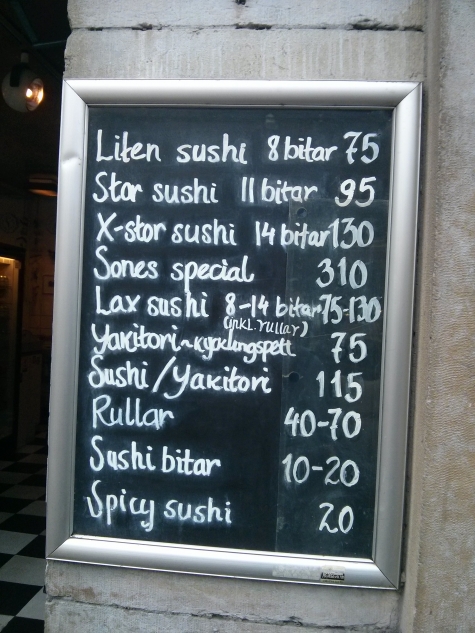 Liten sushi 8 bitar 75
Stor sushi 11 bitar 95
X-stor sushi 14 bitar 130
Sones special 310
Lax sushi 8-14 bitar 75-130
(inkl. rullar)
Yakitori~kycklingspett 75
Sushi/Yakitori 115
Rullar 40-70
Sushi bitar 10-20
Spicy sushi 20